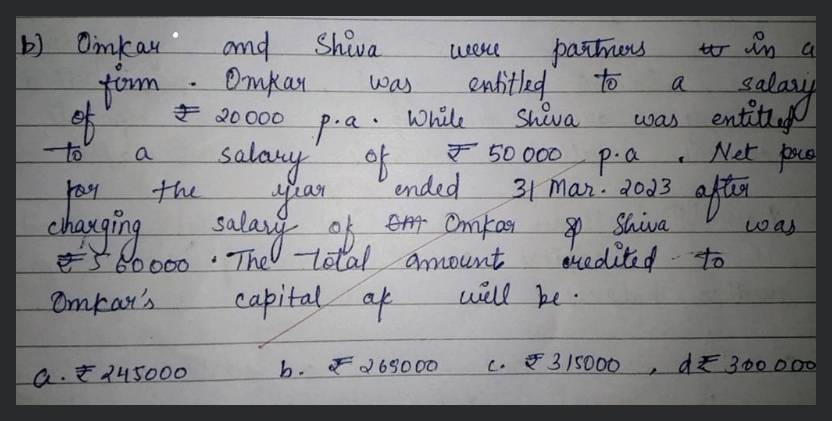 b) Omkar and Shiva were partners in a
firm. Omkar was entitled to a salary
of ₹ 20000 p.a. While Shiva was entitled
to a salary of ₹ 50000 p.a. Net pro
for the year ended 31 Mar. 2023 after
charging salary of Omkar & Shiva was
₹ 560000. The total amount credited to
Omkar's capital a/c will be.
a. ₹ 245000 b. ₹ 269000 c. ₹ 315000, d ₹ 300000